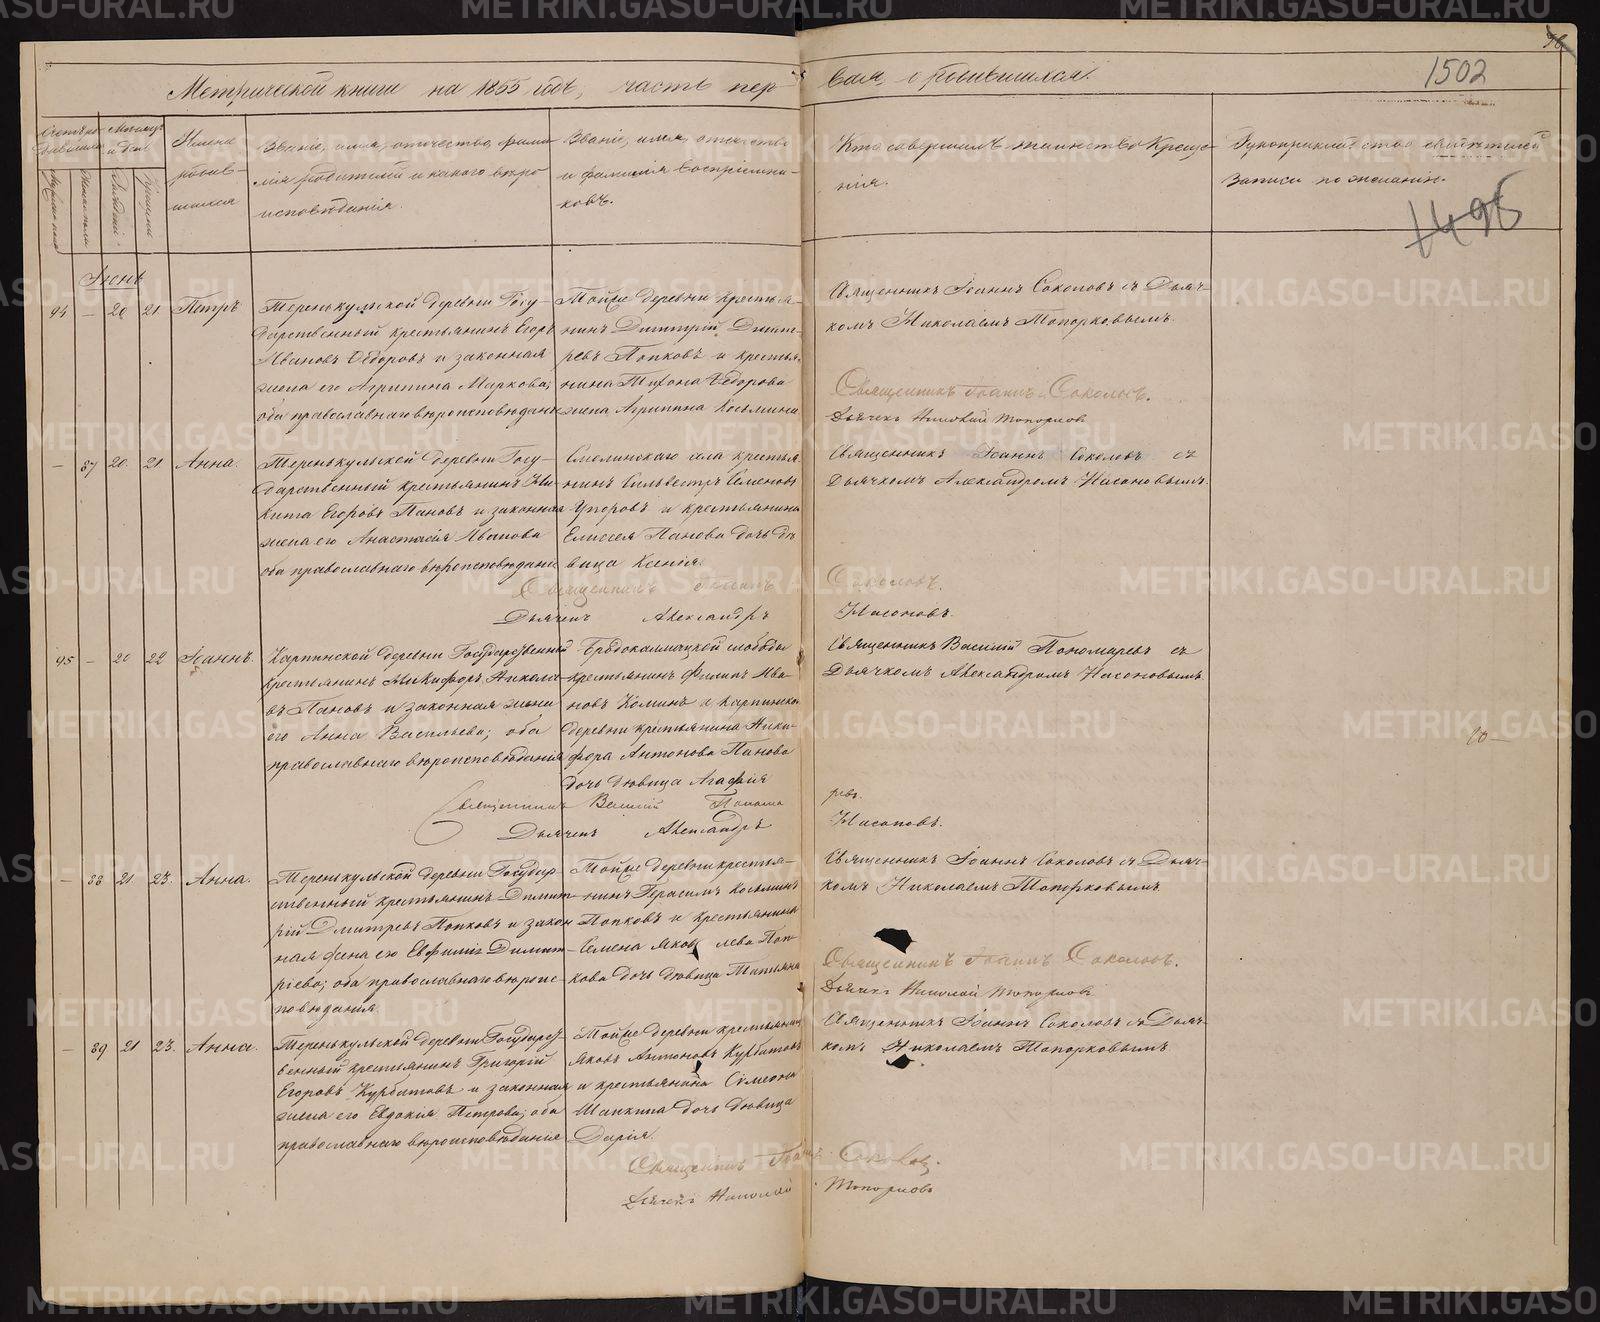 Метрической книги на 1855 годъ, часть пер-
вая, о родившихся.
1502
Мѣсяцъ и день
Имена родив-
шихся
Званіе, имя, отчество, фами-
лія родителей и какого вѣро-
исповѣданія.
Званіе, имя, отчество
и фамилія воспріемни-
ковъ.
Кто совершалъ таинство Креще-
нія.
Рукоприкладство свидѣтелей
записи по желанію.
1496
Іюнь
94 — 20 21 Петръ
Теренькульской деревни Госу-
дарственный крестьянинъ Егоръ
Ивановъ Ѳедоровъ и законная
жена его Агрипина Маркова;
оба православнаго вѣроисповѣданія
Тойже деревни крестья-
нинъ Димитрій Димит-
ревъ Попковъ и крестья-
нина Тихона Ѳедорова
жена Агрипина Косьмина
Священникъ Іоаннъ Соколовъ съ Дьяч-
комъ Николаемъ Топорковымъ.
Священникъ Іоаннъ Соколовъ.
Дьячекъ Николай Топорковъ
— 87 20. 21 Анна.
Теренькульской деревни Госу-
дарственный крестьянинъ Ни-
кита Егоровъ Пановъ и законная
жена его Анастасія Иванова
оба православнаго вѣроисповѣдані
Смолинскаго села крестья-
нинъ Сильвестръ Семеновъ
Упоровъ и крестьянина
Елисея Панова дочь дѣ-
вица Ксенія.
Священникъ Іоаннъ Соколовъ съ
Дьячкомъ Александромъ Насоновымъ.
Священникъ Іоаннъ Соколовъ.
Дьячекъ Александръ Насоновъ.
95 — 20 22 Іоаннъ.
Карпинской деревни Государственный
крестьянинъ Никифоръ Никола-
въ Пановъ и законная жена
его Анна Васильева; оба
православнаго вѣроисповѣданія
Бродокалмацкой слободы
крестьянинъ Филипъ Ива-
новъ Коминъ и Карпинской
деревни крестьянина Ники-
фора Антонова Панова
дочь дѣвица Агафія
Священникъ Василій Пономаревъ съ
Дьячкомъ Александромъ Насоновымъ.
Священникъ Василій Понома ревъ.
Дьячекъ Александръ Насоновъ.
— 88 21. 23. Анна.
Теренькульской деревни Государ-
ственный крестьянинъ Димит-
рій Дмитревъ Попковъ и закон
ная жена его Евфимія Димит-
ріева; оба православнаго вѣроис-
повѣдания.
Тойже деревни крестья-
нинъ Герасимъ Косьминъ
Попковъ и крестьянина
Семена Яковлева Поп-
кова дочь дѣвица Татьяна
Священникъ Іоаннъ Соколовъ съ Дьяч-
комъ Николаемъ Топорковымъ
Священникъ Іоаннъ Соколовъ.
Дьячекъ Николай Топорковъ
— 89 21 23. Анна.
Теренькульской деревни Государст-
венный крестьянинъ Григорій
Егоровъ Курбатовъ и законная
жена его Евдокія Петрова; оба
православнаго вѣроисповѣданія
Тойже деревни крестьянинъ
Яковъ Антоновъ Курбатовъ
и крестьянина Симеона
Шапкина дочь дѣвица
Дарія.
Священникъ Іоаннъ Соколовъ съ Дьяч-
комъ Николаемъ Топорковымъ
Священникъ Іоаннъ Соколовъ.
Дьячекъ Николай Топорковъ